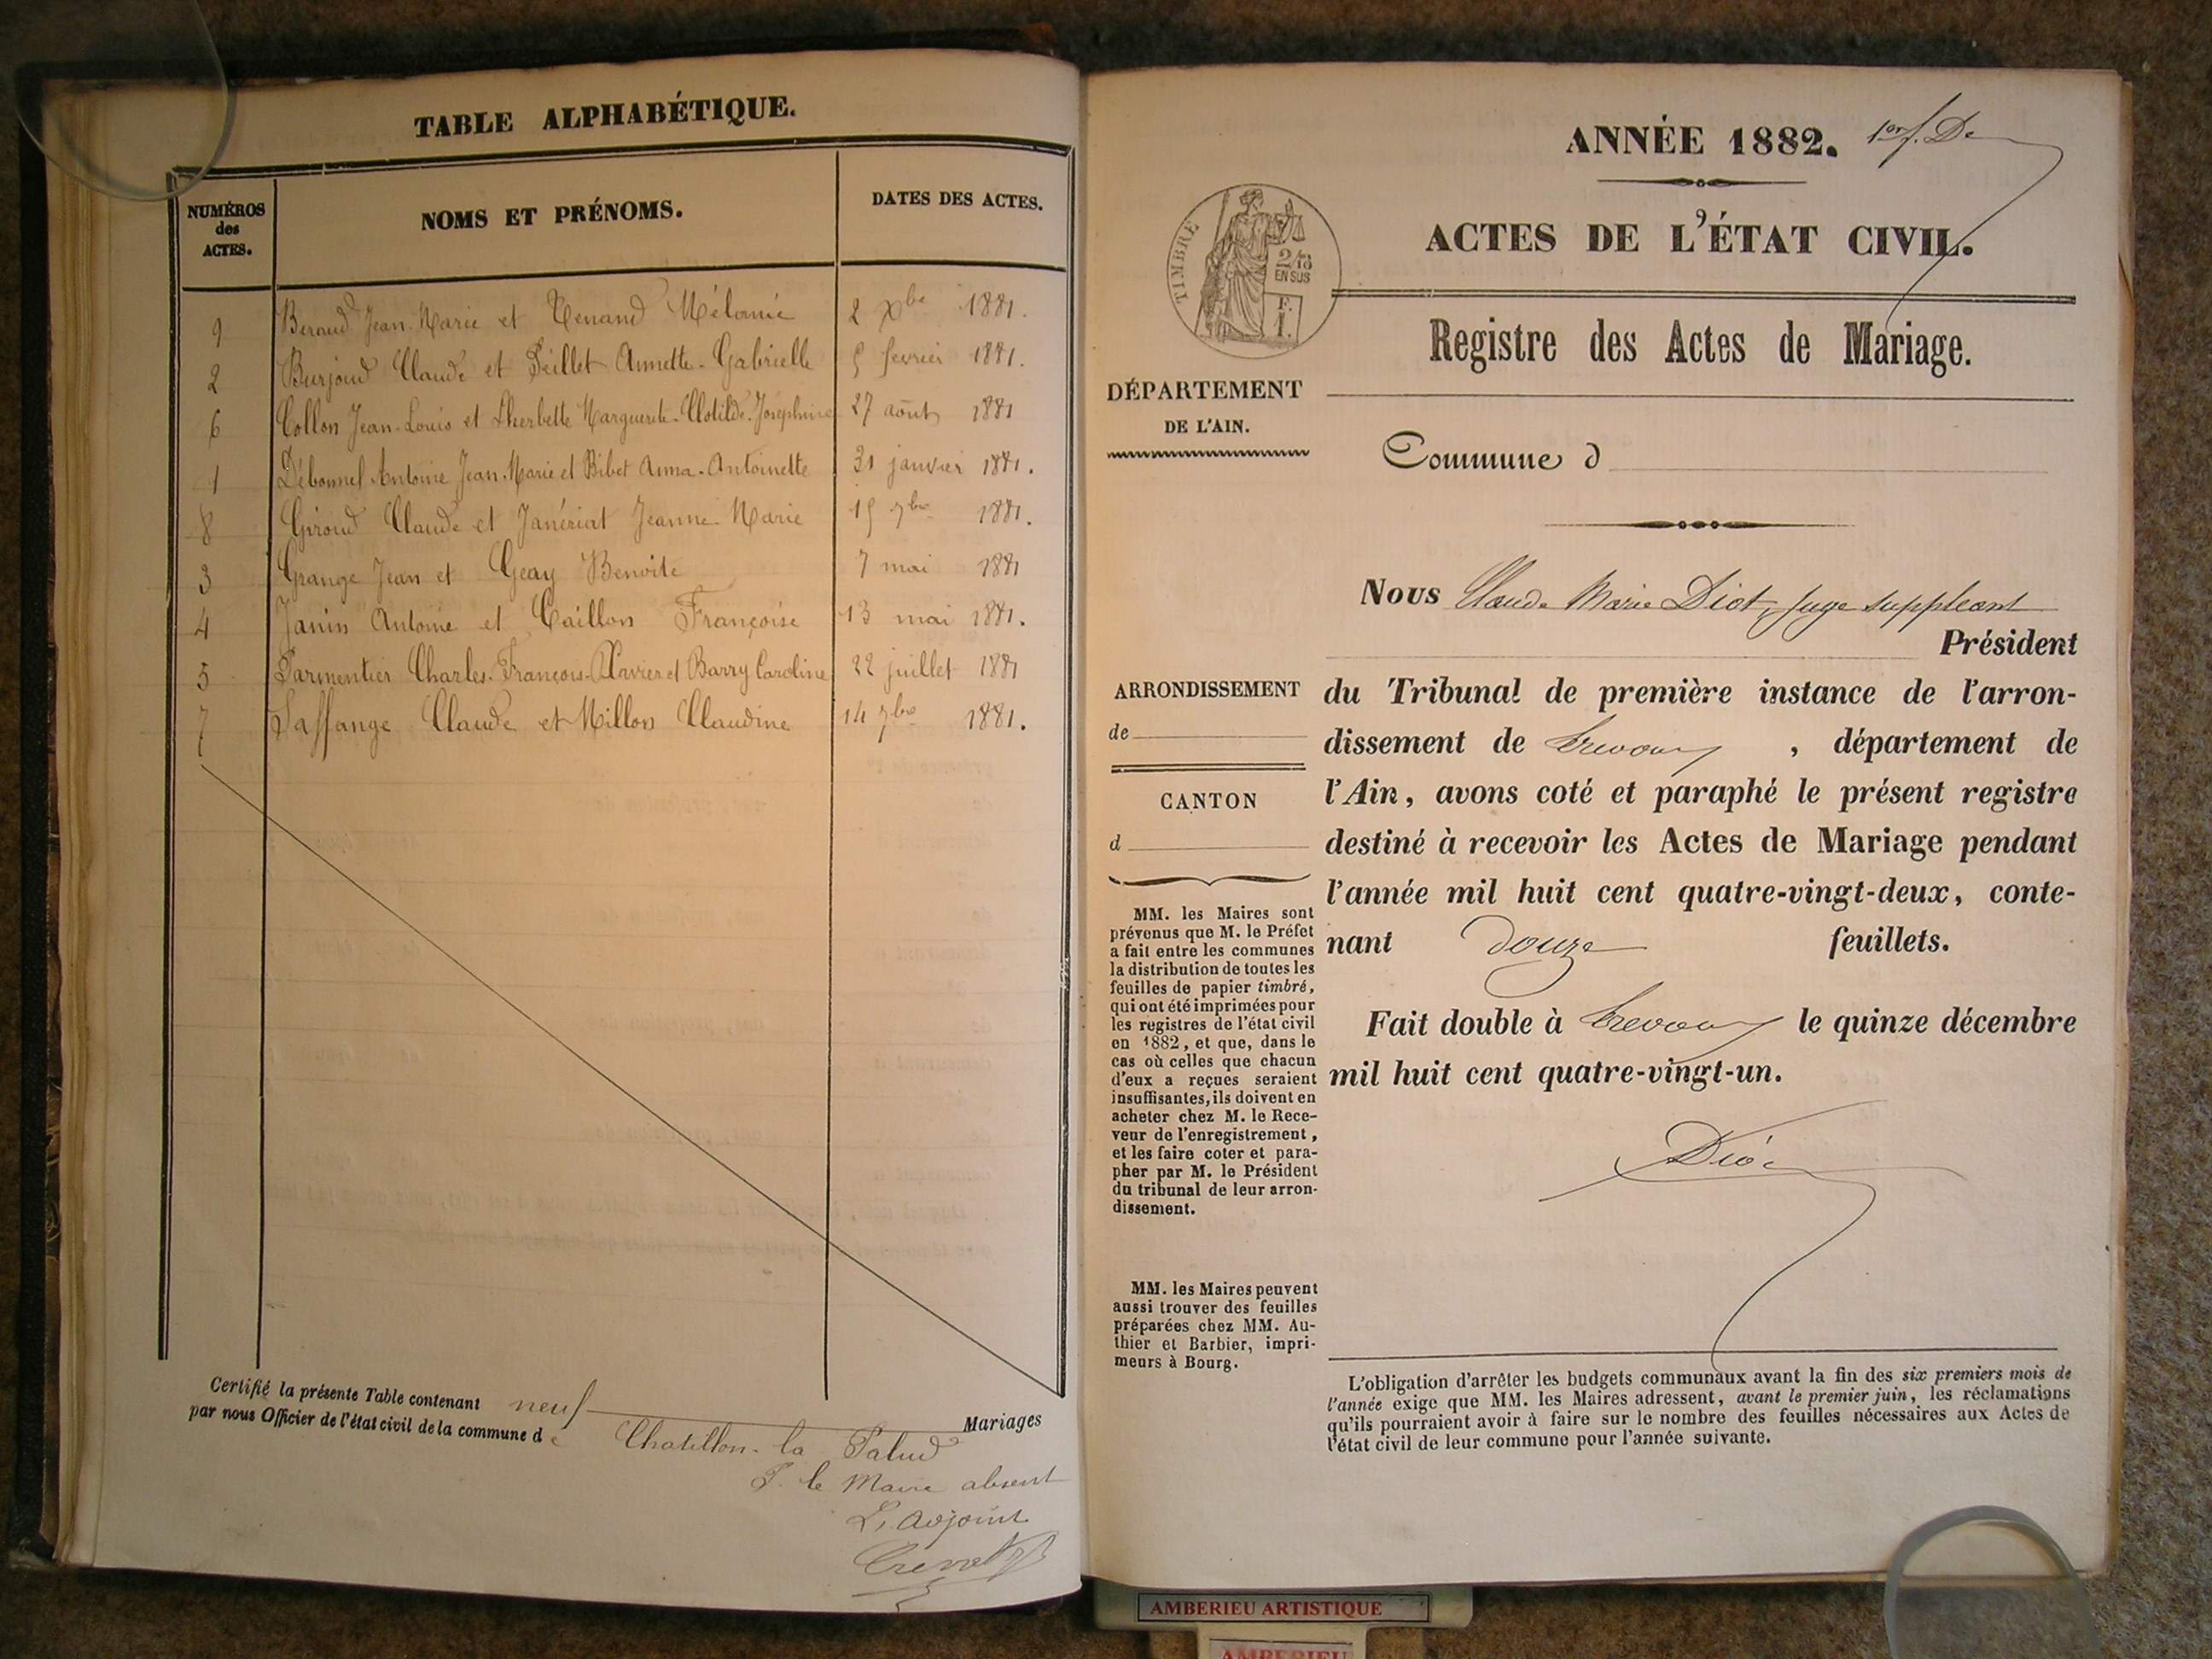 TABLE ALPHABÉTIQUE.
NUMÉROS des ACTES. NOMS ET PRÉNOMS. DATES DES ACTES.
9 Beraud Jean-Marie et Tenand Mélanie 2 Xbe 1881.
2 Burjoud Claude et Peillet Annette-Gabrielle 5 fevrier 1881.
6 Collon Jean-Louis et Lherbette Marguerite-Clotilde-Joséphine 27 août 1881
1 Débonnel Antoine Jean-Marie et Bibet Anna-Antoinette 31 janvier 1881.
8 Giroud Claude et Janériat Jeanne-Marie 15 9bre 1881.
3 Grange Jean et Geay Benoite 7 mai 1881
4 Janin Antoine et Caillon Françoise 13 mai 1881.
5 Parmentier Charles-François-Xavier et Barry Caroline 22 juillet 1881
7 Saffange Claude et Millon Claudine 14 7bre 1881.
Certifié la présente Table contenant neuf Mariages
par nous Officier de l'état civil de la commune de Chatillon-la Palud
P. le Maire absent
L'adjoint
ANNÉE 1882. 1er f. D
TIMBRE
2/10
EN SUS
F.
1.
ACTES DE L'ÉTAT CIVIL.
Registre des Actes de Mariage.
DÉPARTEMENT
DE L'AIN.
Commune d
Nous Claude Marie Diot, juge suppleant
Président
ARRONDISSEMENT
de
CANTON
d
du Tribunal de première instance de l'arron-
dissement de Trevoux, département de
l'Ain, avons coté et paraphé le présent registre
destiné à recevoir les Actes de Mariage pendant
l'année mil huit cent quatre-vingt-deux, conte-
nant douze feuillets.
Fait double à Trevoux le quinze décembre
mil huit cent quatre-vingt-un.
Diot
MM. les Maires sont
prévenus que M. le Préfet
a fait entre les communes
la distribution de toutes les
feuilles de papier timbré,
qui ont été imprimées pour
les registres de l'état civil
en 1882, et que, dans le
cas où celles que chacun
d'eux a reçues seraient
insuffisantes, ils doivent en
acheter chez M. le Rece-
veur de l'enregistrement,
et les faire coter et para-
pher par M. le Président
du tribunal de leur arron-
dissement.
MM. les Maires peuvent
aussi trouver des feuilles
préparées chez MM. Au-
thier et Barbier, impri-
meurs à Bourg.
L'obligation d'arrêter les budgets communaux avant la fin des six premiers mois de
l'année exige que MM. les Maires adressent, avant le premier juin, les réclamations
qu'ils pourraient avoir à faire sur le nombre des feuilles nécessaires aux Actes de
l'état civil de leur commune pour l'année suivante.
AMBERIEU ARTISTIQUE
AMBERIEU